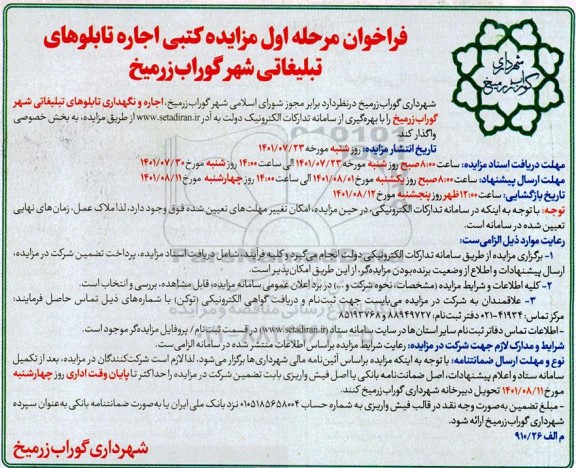 شهرداری
گوراب زرمیخ
فراخوان مرحله اول مزایده کتبی اجاره تابلوهای
تبلیغاتی شهر گوراب زرمیخ
شهرداری گوراب زرمیخ درنظردارد برابر مجوز شورای اسلامی شهر گوراب زرمیخ، اجاره و نگهداری تابلوهای تبلیغاتی شهر
گوراب زرمیخ را با بهره‌گیری از سامانه تدارکات الکترونیک دولت به آدرس www.setadiran.ir از طریق مزایده، به بخش خصوصی
واگذار کند.
تاریخ انتشار مزایده: روز شنبه مورخه ۱۴۰۱/۰۷/۲۳
مهلت دریافت اسناد مزایده: ساعت ۸:۰۰ صبح روز شنبه مورخه ۱۴۰۱/۰۷/۲۳ الی ساعت ۱۴:۰۰ روز شنبه مورخ ۱۴۰۱/۰۷/۳۰
مهلت ارسال پیشنهاد: ساعت ۸:۰۰ صبح روز یکشنبه مورخ ۱۴۰۱/۰۸/۰۱ الی ساعت ۱۴:۰۰ روز چهارشنبه مورخ ۱۴۰۱/۰۸/۱۱
تاریخ بازگشایی: ساعت ۱۲:۰۰ ظهر روز پنجشنبه مورخ ۱۴۰۱/۰۸/۱۲
توجه: با توجه به اینکه در سامانه تدارکات الکترونیکی، در حین مزایده، امکان تغییر مهلت‌های تعیین شده فوق وجود دارد، لذا ملاک عمل، زمان‌های نهایی
تعیین شده در سامانه است.
رعایت موارد ذیل الزامی‌ست:
۱- برگزاری مزایده از طریق سامانه تدارکات الکترونیکی دولت انجام می‌گیرد و کلیه فرآیند، شامل دریافت اسناد مزایده، پرداخت تضمین شرکت در مزایده،
ارسال پیشنهادات و اطلاع از وضعیت برنده بودن مزایده‌گر، از این طریق امکان‌پذیر است.
۲- کلیه اطلاعات و شرایط مزایده (مشخصات، نحوه شرکت و ...) در برد اعلان عمومی سامانه مزایده، قابل مشاهده، بررسی و انتخاب است.
۳- علاقمندان به شرکت در مزایده می‌بایست جهت ثبت‌نام و دریافت گواهی الکترونیکی (توکن) با شماره‌های ذیل تماس حاصل فرمایند:
مرکز تماس: ۴۱۹۳۴-۰۲۱ دفتر ثبت‌نام: ۸۸۹۶۹۷۳۷ و ۸۵۱۹۳۷۶۸
- اطلاعات تماس دفاتر ثبت‌نام سایر استان‌ها در سایت سامانه ستاد (www.setadiran.ir) در قسمت ثبت‌نام / پروفایل مزایده‌گر موجود است.
شرایط و مدارک لازم جهت شرکت در مزایده: رعایت شرایط مزایده براساس اطلاعات منتشر شده در سامانه الزامی‌ست.
نوع و مهلت ارسال ضمانتنامه: با توجه به اینکه مزایده براساس آئین‌نامه مالی شهرداری‌ها برگزار می‌شود، لذا لازم است شرکت‌کنندگان در مزایده، بعد از تکمیل
سامانه ستاد و اعلام پیشنهادات، اصل ضمانت‌نامه بانکی یا اصل فیش واریزی بابت تضمین شرکت در مزایده را حداکثر تا پایان وقت اداری روز چهارشنبه
مورخ ۱۴۰۱/۰۸/۱۱ تحویل دبیرخانه شهرداری گوراب زرمیخ کنند.
- مبلغ تضمین به‌صورت وجه نقد در قالب فیش واریزی به شماره حساب ۰۱۰۵۱۸۵۶۵۸۰۰۴ نزد بانک ملی ایران یا به‌صورت ضمانتنامه بانکی به‌عنوان سپرده
شهرداری گوراب زرمیخ ارائه شود.
م الف ۹۱۰/۲۶
شهرداری گوراب زرمیخ